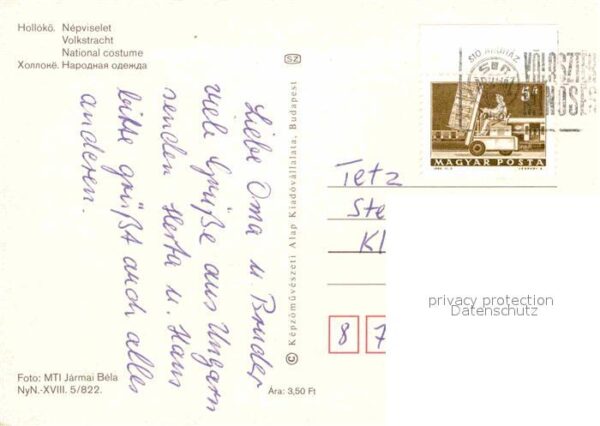 Hollókő. Népviselet
Volkstracht
National costume
Холлокё. Народная одежда
Liebe Oma u. Bruder
viele Grüße aus Ungarn
senden Herta u. Hans
bitte grüßt auch alles
anderen.
SZ
© Képzőművészeti Alap Kiadóvállalata, Budapest
SIÓ ÁRUHÁZ
5Ft
MAGYAR POSTA
Tetz
Ste
Kl
8 7
privacy protection
Datenschutz
Foto: MTI Jármai Béla
NyN.-XVIII. 5/822.
Ára: 3,50 Ft